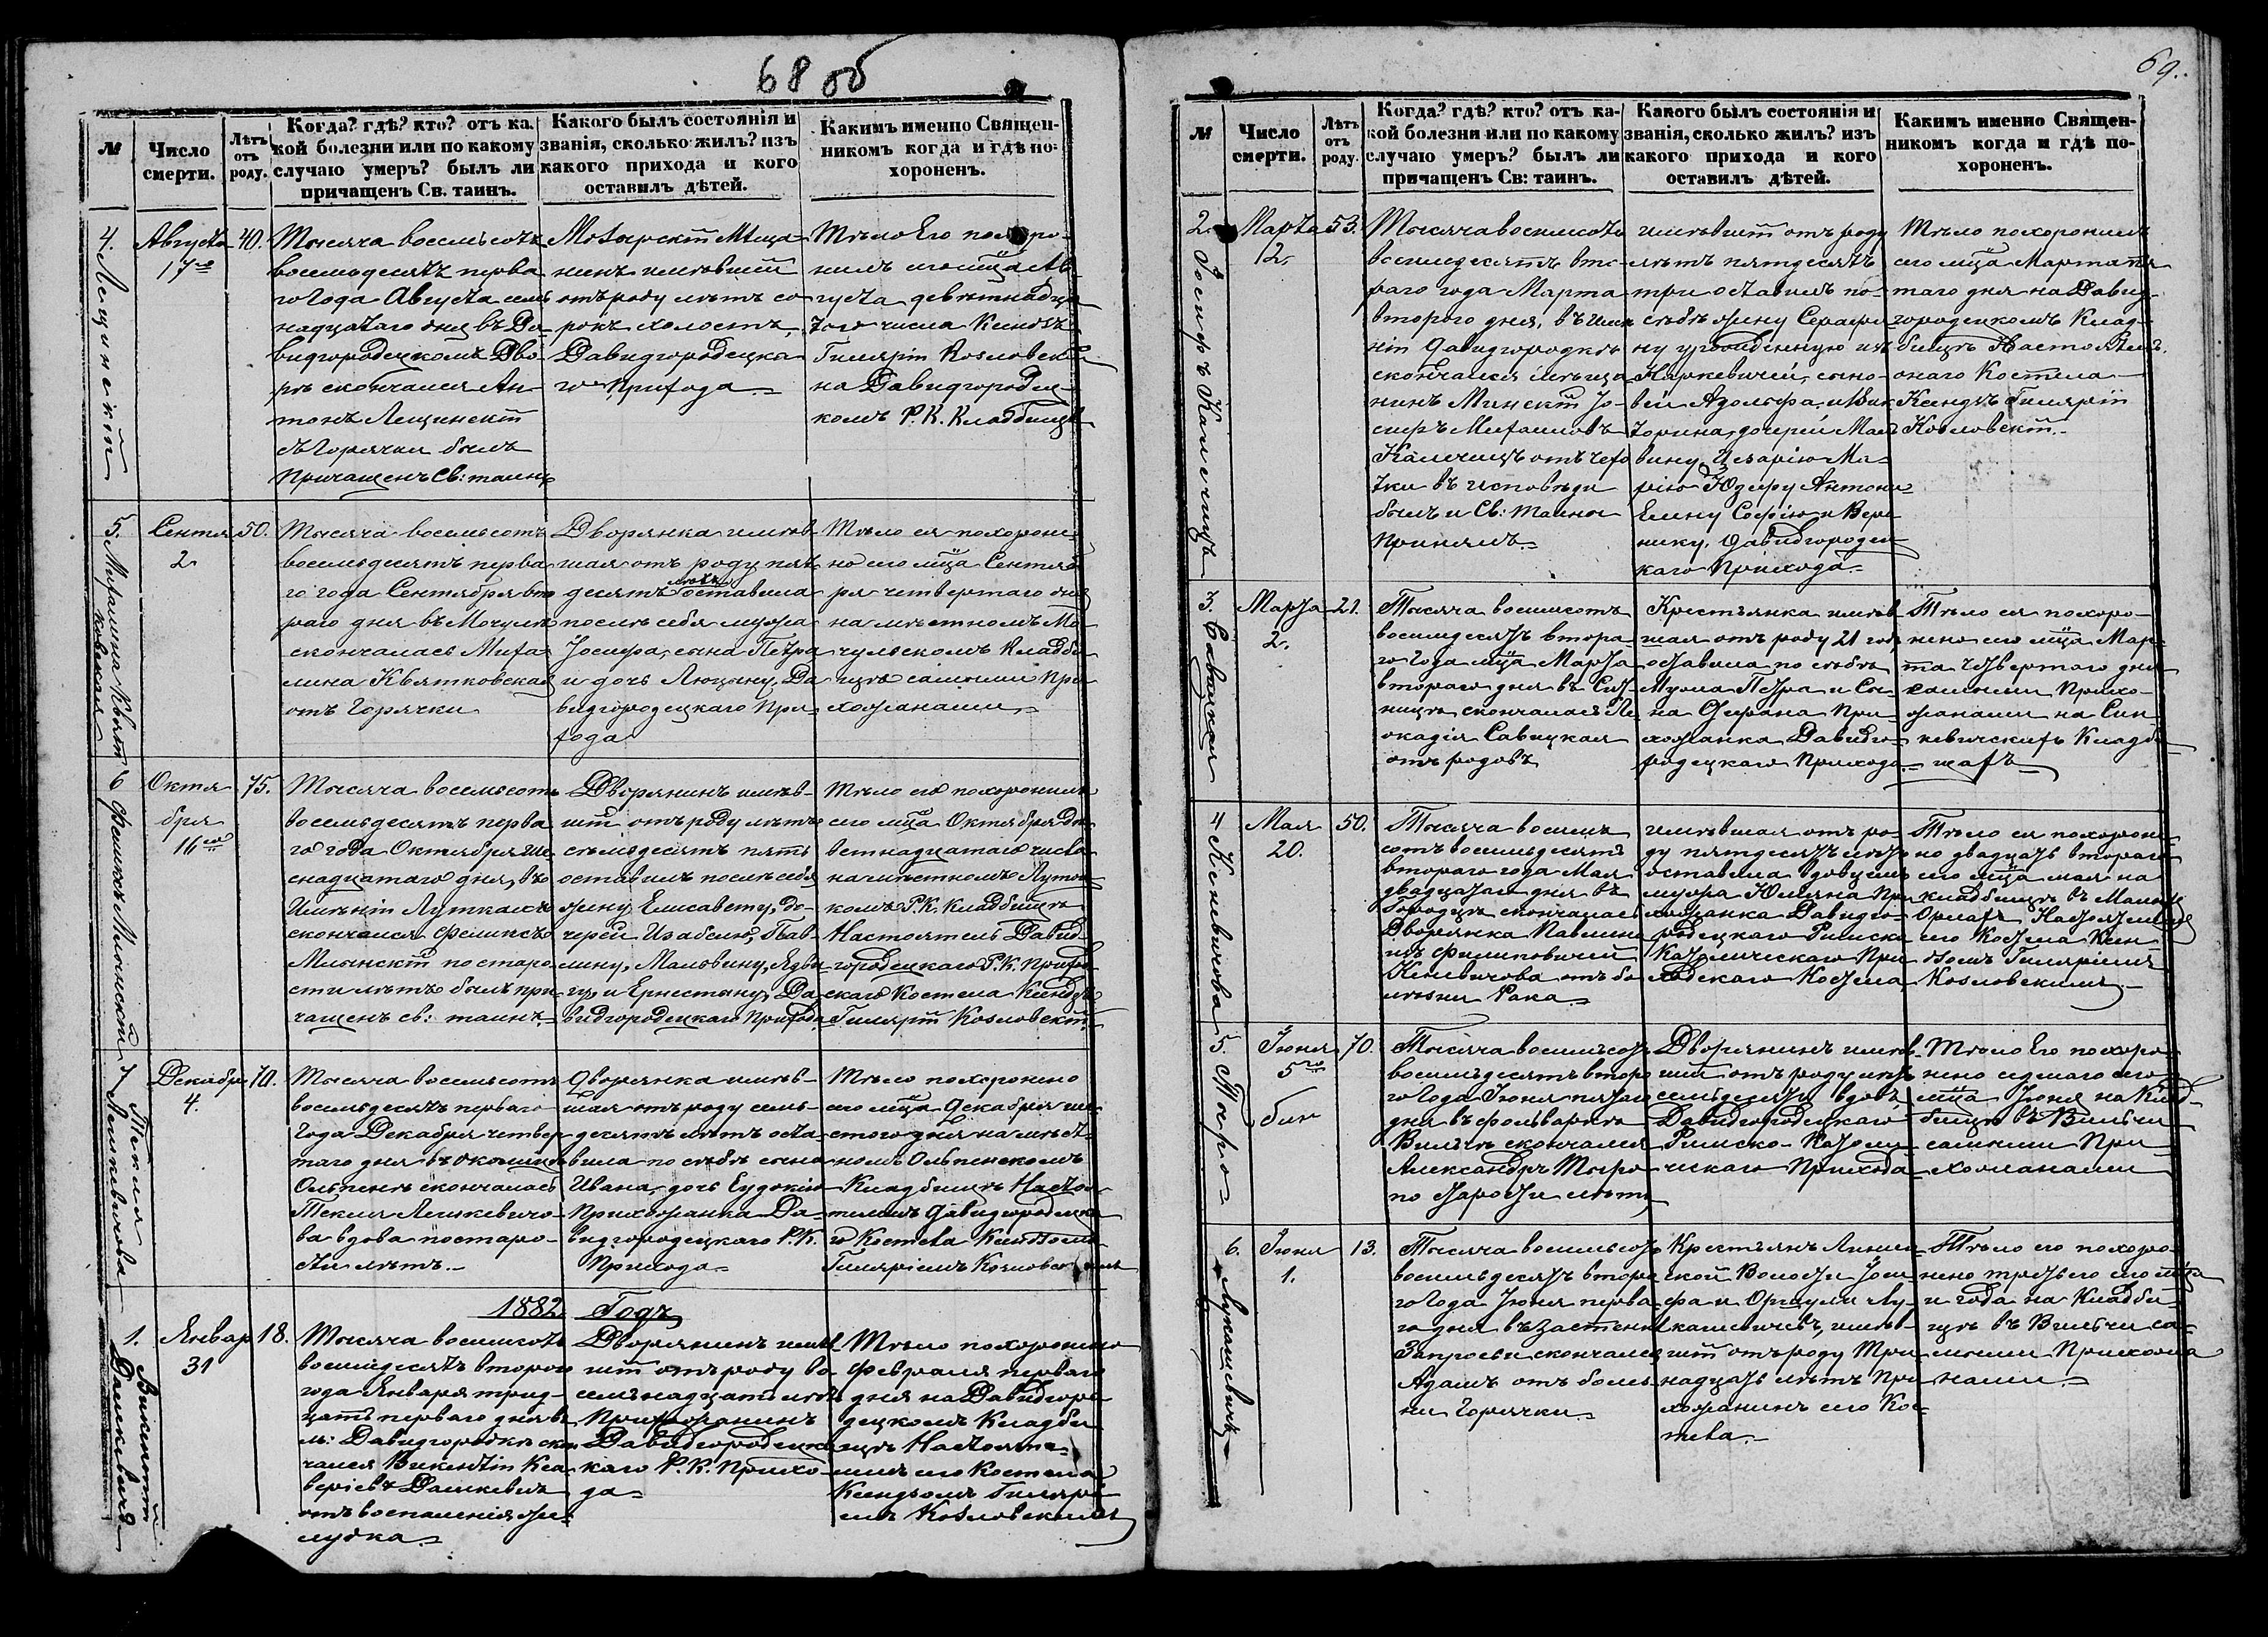 68 об
№
Число
смерти.
Лѣтъ
отъ
роду.
Когда? гдѣ? кто? отъ ка-
кой болезни или по какому
случаю умеръ? былъ ли
причащенъ Св. таинъ.
Какого былъ состоянія и
званія, сколько жилъ? изъ
какого прихода и кого
оставилъ дѣтей.
Какимъ именно Священ-
никомъ когда и гдѣ по-
хороненъ.
4. Лещинскій
Августа
17го
40.
Тысяча восемьсотъ
восемьдесятъ перва
го года Августа семь
надцатаго дня въ Да
видгородецкомъ Дво-
рѣ скончался Ан-
тонъ Лещинскій
съ Горячки былъ
Причащенъ Св: таинъ
Мозырскій Мѣща-
нинъ имѣвшій
отъ роду лѣтъ со
рокъ холостъ,
Давидгородецка
го Прихода
Тѣло Его похоро-
нилъ сего мца Ав-
густа девятнадца
того числа Ксендзъ
Гилярій Козловскій
на Давидгородец-
комъ Р. К. Кладбищѣ
5. Михалина Квят
ковская
Сентя
2
50.
Тысяча восемьсотъ
восемьдесятъ перва
го года Сентября вто
раго дня въ Мочулѣ
скончалась Миха
лина Квятковская
отъ Горячки
Дворянка имѣв-
шая отъ роду пять
десятъ лѣтъ оставила
послѣ себя мужа
Іосифа, сына Петра
и дочь Люцыну, Да
видгородецкаго При-
хода
Тѣло ея похороне-
но сего мца Сентяб
ря четвертаго дня
на мѣстномъ Мо
чульскомъ Кладби
щѣ самыми При
хожанами
6 Феликсъ Млынскій
Октя
бря
16го
75.
Тысяча восемьсотъ
восемьдесятъ перва
го года Октября ше
снадцатаго дня, въ
Имѣніи Луткахъ
скончался Феликсъ
Млынскій по старо
сти лѣтъ былъ при
чащенъ св: таинъ
Дворянинъ имѣв-
шій отъ роду лѣтъ
семьдесятъ пять
оставилъ послѣ себя
жену Елисавету, до-
черей Изабелю, Пав-
лину, Мальвину, Ядви
гу и Ернестину, Да
видгородецкаго Прихода
Тѣло его похоронилъ
сего мца Октября де
вятнадцатаго числа
на мѣстномъ Лутов
комъ Р. К. Кладбищѣ
Настоятель Давид-
городецкаго Р. К. Прихо
скаго Костела Ксендзъ
Гилярій Козловскій
7 Текля
Лешкевичова
Декабр
4.
70.
Тысяча восемьсотъ
восемьдесятъ перваго
Года Декабря четвер
таго дня въ Околицѣ
Ольпенѣ скончалась
Текля Лешкевичо-
ва вдова по старо-
сти лѣтъ.
Дворянка имѣв-
шая отъ роду семь-
десятъ лѣтъ оста-
вила по себѣ сына
Ивана, дочь Евдокію
Прихожанка Да-
видгородецкаго Р. К.
Прихода
Тѣло похоронено
сего мца Декабря ше
стого дня на мѣст-
номъ Ольпенскомъ
Кладбищѣ Насто-
ятелемъ Давидгородецка
го Костела Ксендзомъ
Гиляріемъ Козловскимъ
1882 Годъ
1. Викентій
Дашкевичъ
Январ
31
18.
Тысяча восемьсотъ
восемьдесятъ второго
года Января трид-
цать перваго дня въ
м: Давидгородкѣ скон
чался Викентій Кса
веріевъ Дашкевичъ
отъ воспаленія же-
лудка.
Дворянинъ имѣв
шій отъ роду во
семьнадцать лѣтъ
Прихожанинъ
Давидгородецка
каго Р. К. Прихо-
да
Тѣло похоронено
Февраля перваго
дня на Давидгоро
децкомъ Кладби
щѣ Настояте-
лемъ сего Костела
Ксендзомъ Гиляри
емъ Козловскимъ
69.
№
Число
смерти.
Лѣтъ
отъ
роду.
Когда? гдѣ? кто? отъ ка-
кой болезни или по какому
случаю умеръ? былъ ли
причащенъ Св: таинъ.
Какого былъ состоянія и
званія, сколько жилъ? изъ
какого прихода и кого
оставилъ дѣтей.
Какимъ именно Священ-
никомъ когда и гдѣ по-
хороненъ.
2. Іосифъ Калечицъ
Марта
2
53.
Тысяча восемьсотъ
восемьдесятъ вто-
раго года Марта
второго дня, въ Имѣ
ніи Давидгородкѣ
скончался мѣща-
нинъ Минскій Іо-
сифъ Михаиловъ
Калечицъ отъ чехо
тки въ исповѣди
былъ и Св: таины
Принялъ.
имѣвшій отъ роду
лѣтъ пятдесятъ
три оставилъ по-
себѣ жену Серафи
ну урожденную изъ
Наркевичей, сыно-
вей Адольфа и Вик
торина, дочерей Маль
вину, Цезарію Ма-
рію Юзефу Антони
Елину Софію и Веро
нику, Давидгородец
каго Прихода.
Тѣло похоронилъ
сего мца Марта пя
таго дня на Давид-
городецкомъ Клад-
бищѣ Настоятель
онаго Костела
Ксендзъ Гилярій
Козловскій.
3. Савицкая
Марта
2.
21.
Тысяча восемьсотъ
восемдесятъ втора-
го Года мца Марта
втораго дня въ Сит-
ницѣ скончалась Ле
окадія Савицкая
отъ родовъ
Крестьянка имѣв
шая отъ роду 21 годъ
оставила по себѣ
Мужа Петра и Сы-
на Стефана При-
хожанка Давидго-
родецкаго Прихода
Тѣло ея похоро-
нено сего мца Мар-
та четвертаго дня
самыми Прихо-
жанами на Син-
кевичскихъ Кладби
щахъ
4 Кеневичова
Мая
20.
50.
Тысяча восемь
сотъ восемьдесятъ
втораго года Мая
двадцатаго дня въ
Городцѣ скончалась
Дворянка Павлина
изъ Филиповичей
Кеневичова отъ бо-
лѣзни Рака.
имѣвшая отъ ро-
ду пятдесятъ лѣтъ
оставила вдовцемъ
мужа Юліяна При
хожанка Давидго-
родецкаго Римско
Католическаго При
ходскаго Костела
Тѣло ея похороне
но двадцать второго
сего мца мая на
кладбищѣ въ Малыхъ
Орлахъ Настоятелемъ
сего Костела Ксен
дзомъ Гиляріемъ
Козловскимъ
5. Тыро-
Іюня
5го
70.
Тысяча восемьсотъ
восемьдесятъ второ
го Года Іюня пятаго
дня въ фольваркѣ
Вильчѣ скончался
Александръ Тыро
по старости лѣтъ
Дворянинъ имѣв
шій отъ роду лѣтъ
семьдесятъ вдовъ
Давидгородецкаго
Римско-Католи
ческаго Прихода
Тѣло Его похоро
нено седмаго сего
мца Іюня на Клад-
бищѣ въ Вильчи
самыми При-
хожанами
6. Лукашевичъ
Іюня
1.
13.
Тысяча восемьсотъ
восемьдесятъ второ
го Года Іюня перва-
го дня въ застенкѣ
Запросьи скончался
Адамъ отъ болѣз
ни Горячки.
Крестьянъ
ской Волости Іоси
фа и Оршули Лу-
кашевичевъ, имѣв-
шій отъ роду Три
надцать лѣтъ При
хожанинъ сего Кос-
тела.
Тѣло его похоро-
нено третьего сего мца
и года на Кладби-
щѣ въ Вильчи са-
мыми Прихожа
нами.